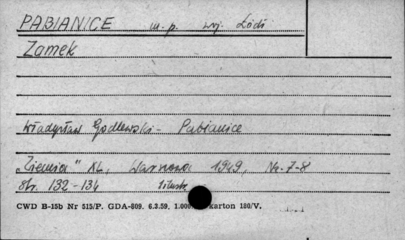 PABIANICE m.p. woj. Łódź
Zamek
Władysław Godlewski - Pabianice
"Ziemia" XL, Warszawa 1949, Nr. 7-8
str. 132-134
CWD B-15b Nr 515/P. GDA-809. 6.3.59. 1.000 karton 180/V.